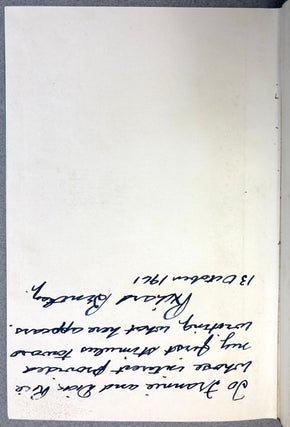 To Frannie and Dick Rice
whose interest provided
my first stimulus toward
writing what here appears.
Richard Bendey.
13 October 1961